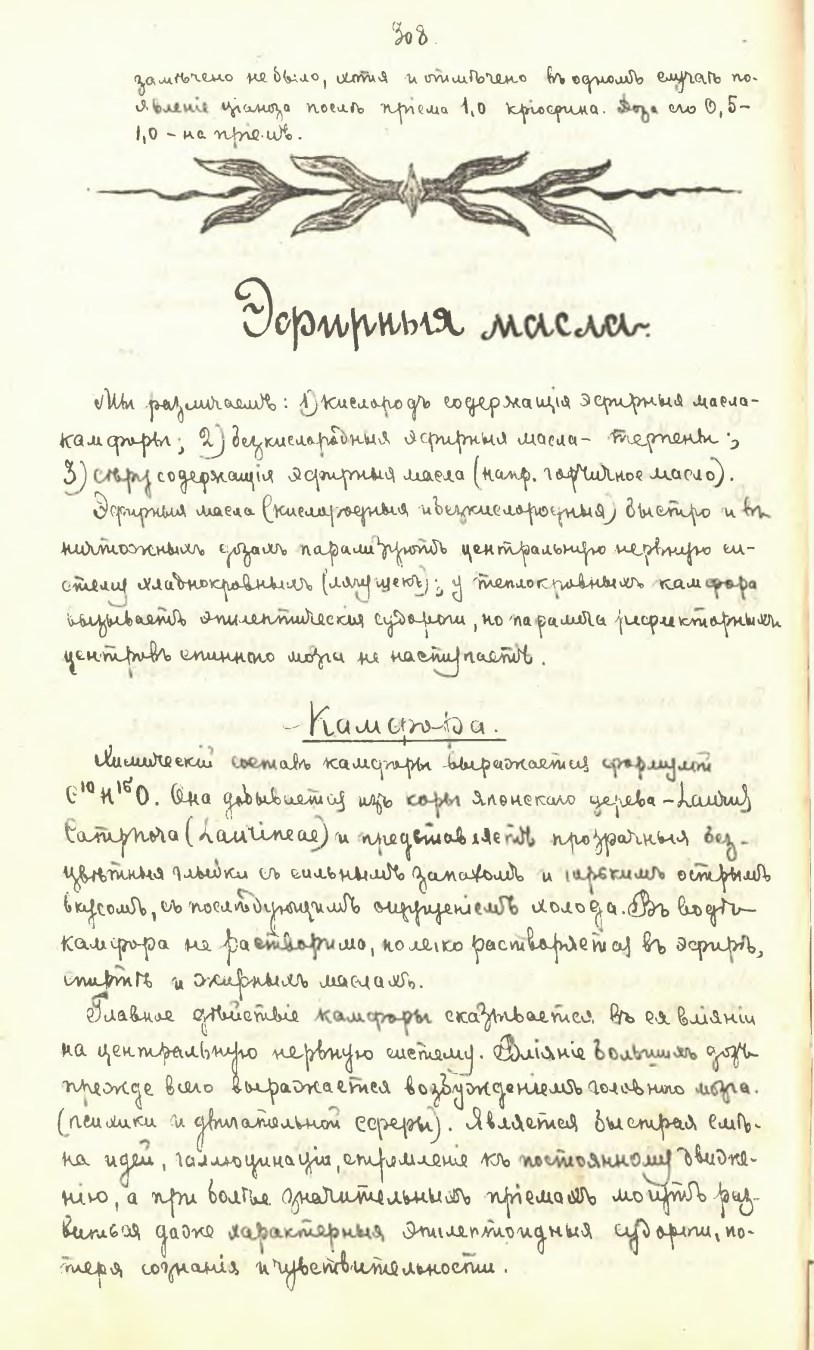 308
замѣчено не было, хотя и отмѣчено въ одномъ случаѣ по-
явленіе ціаноза послѣ пріема 1,0 кріофина. Доза его 0,5-
1,0 - на пріемъ.
Эфирныя масла.
Мы различаемъ: 1) кислородъ содержащія эфирныя масла-
камфоры; 2) безкислородныя эфирныя масла- терпены;
3) сѣру содержащія эфирныя масла (напр. горчичное масло).
Эфирныя масла (кислородныя и безкислородныя) быстро и въ
ничтожныхъ дозахъ парализуютъ центральную нервную си-
стему хладнокровныхъ (лягушекъ); у теплокровныхъ камфора
вызываетъ эпилептическія судороги, но паралича рефлекторныхъ
центровъ спинного мозга не наступаетъ.
Камфора.
Химическій составъ камфоры выражается формулой
C¹⁰H¹⁶O. Она добывается изъ коры японскаго дерева - Laurus
Camphora (Laurineae) и представляетъ прозрачныя без-
цвѣтныя глыбки съ сильнымъ запахомъ и горькимъ острымъ
вкусомъ, съ послѣдующимъ ощущеніемъ холода. Въ водѣ
камфора не растворима, но легко растворяется въ эфирѣ,
спиртѣ и жирныхъ маслахъ.
Главное дѣйствіе камфоры сказывается въ ея вліяніи
на центральную нервную систему. Вліяніе большихъ дозъ
прежде всего выражается возбужденіемъ головного мозга.
(психики и двигательной сферы). Является быстрая смѣ-
на идей, галлюцинаціи, стремленіе къ постоянному движе-
нію, а при болѣе значительныхъ пріемахъ могутъ раз-
виться даже характерныя эпилептоидныя судороги, по-
теря сознанія и чувствительности.